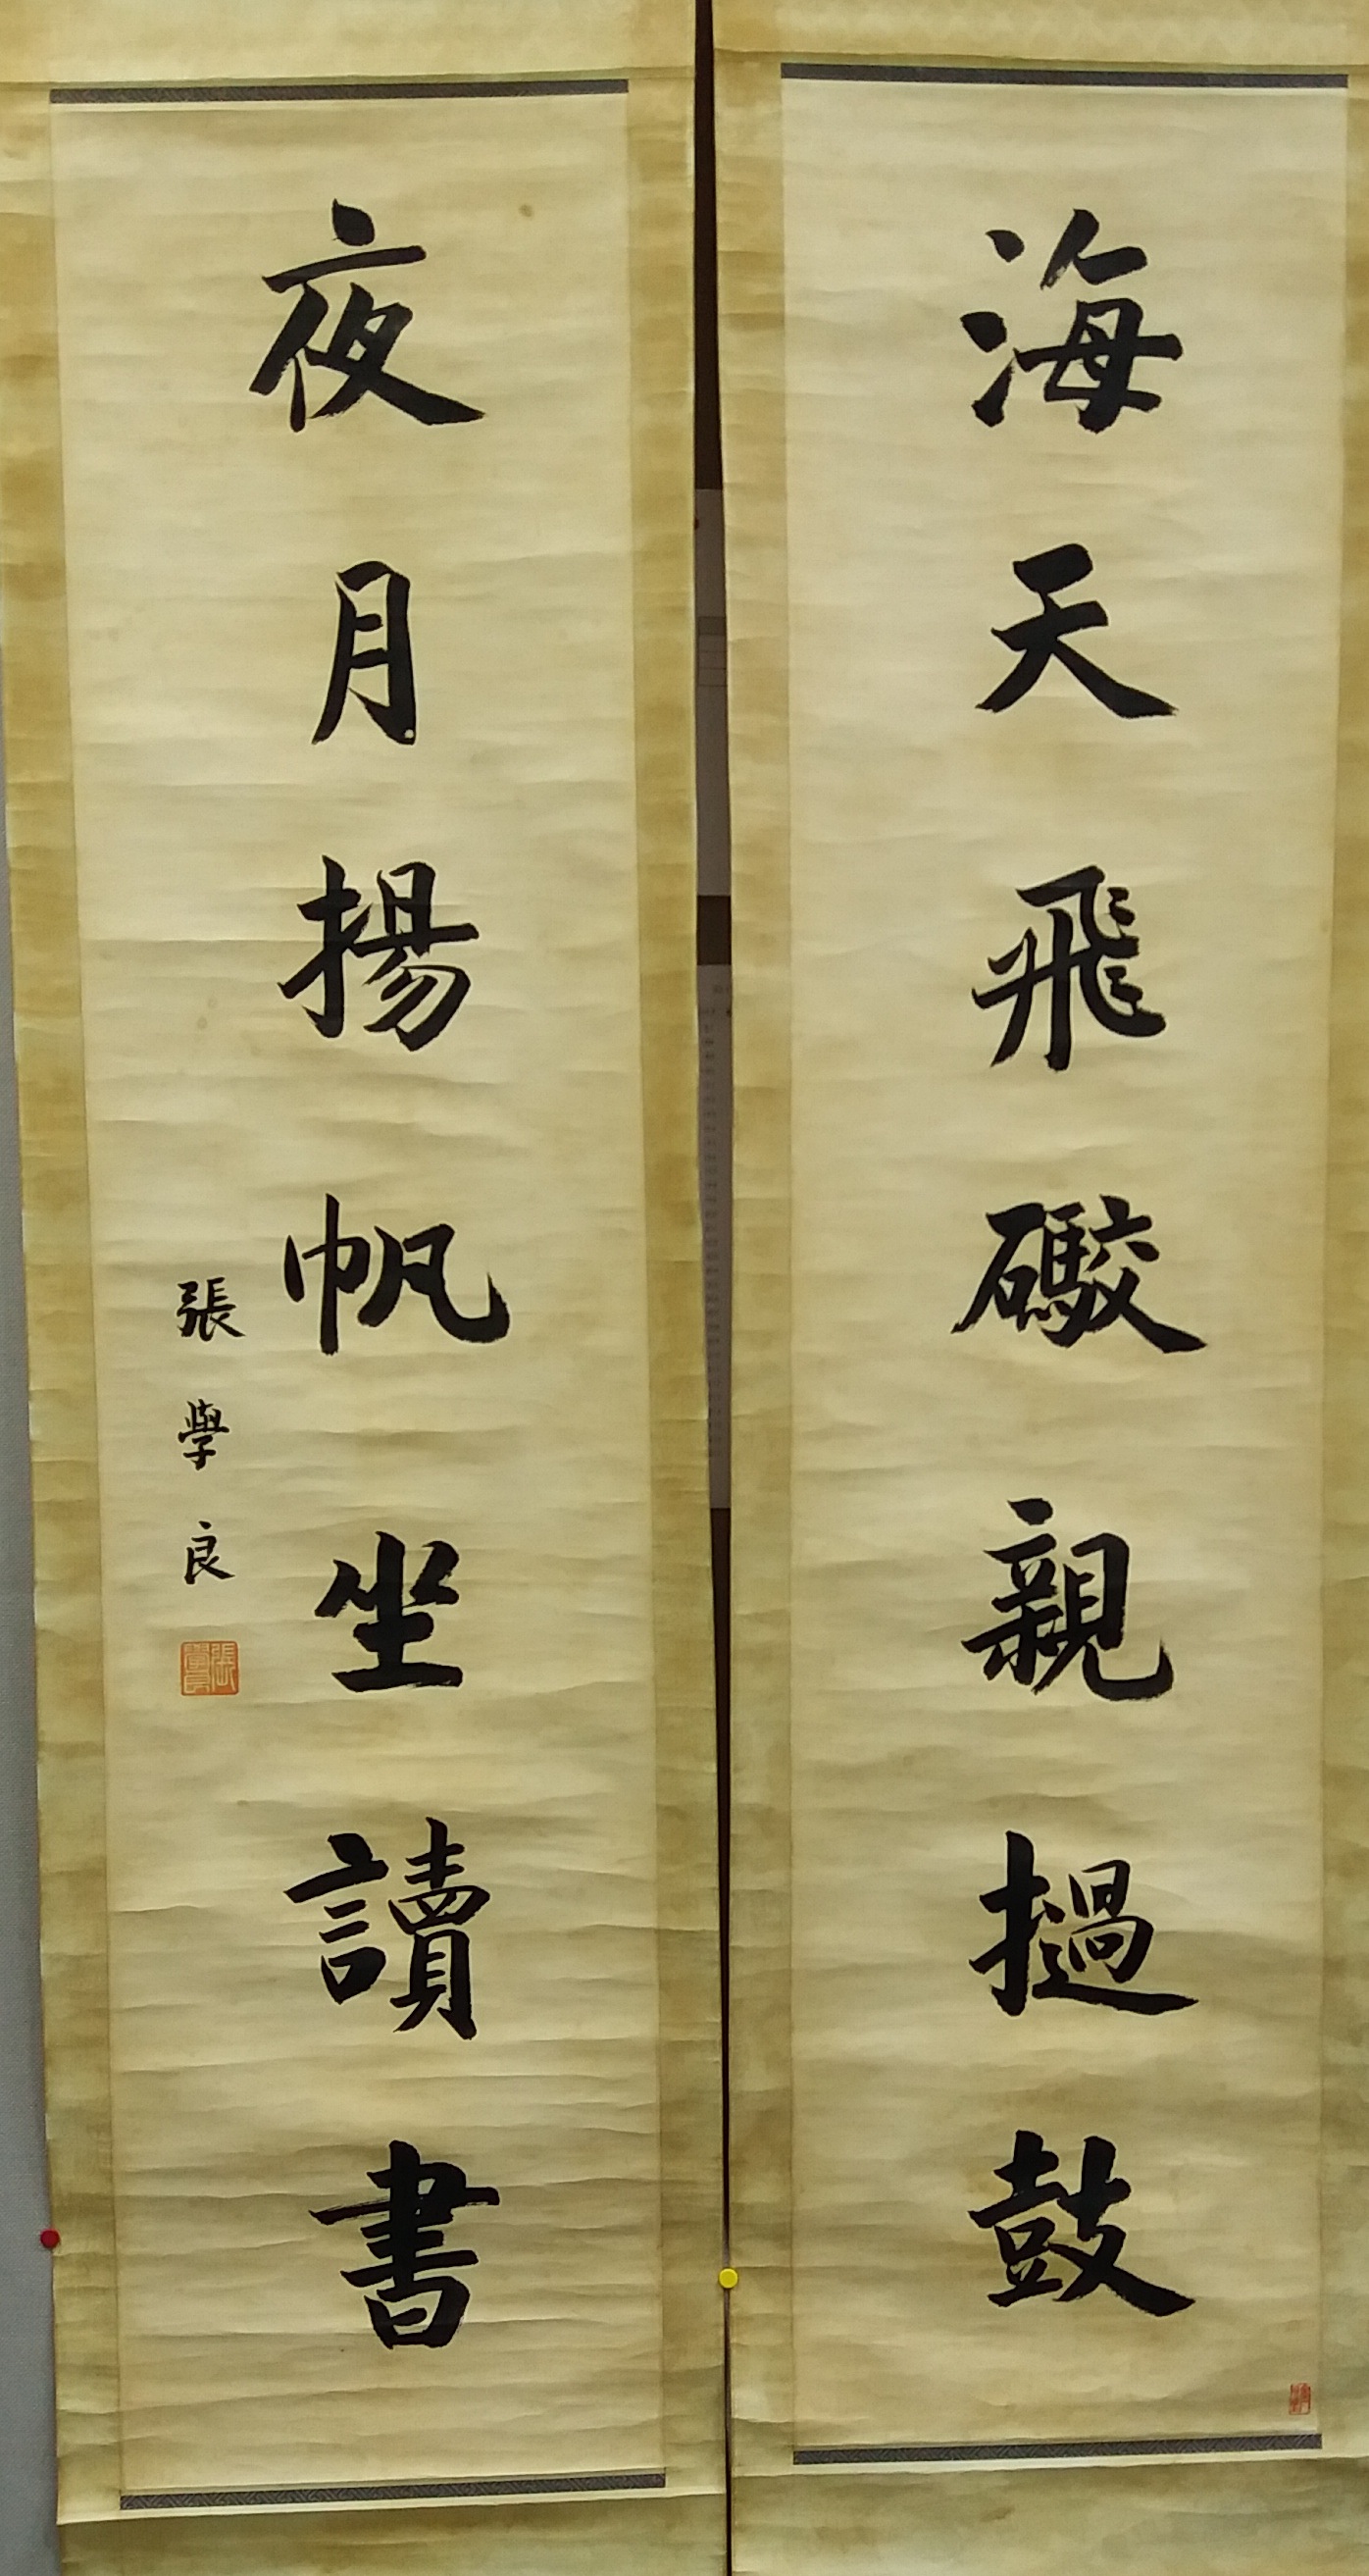 海天飛礮親撾鼓
夜月揚帆坐讀書
張學良
張學良